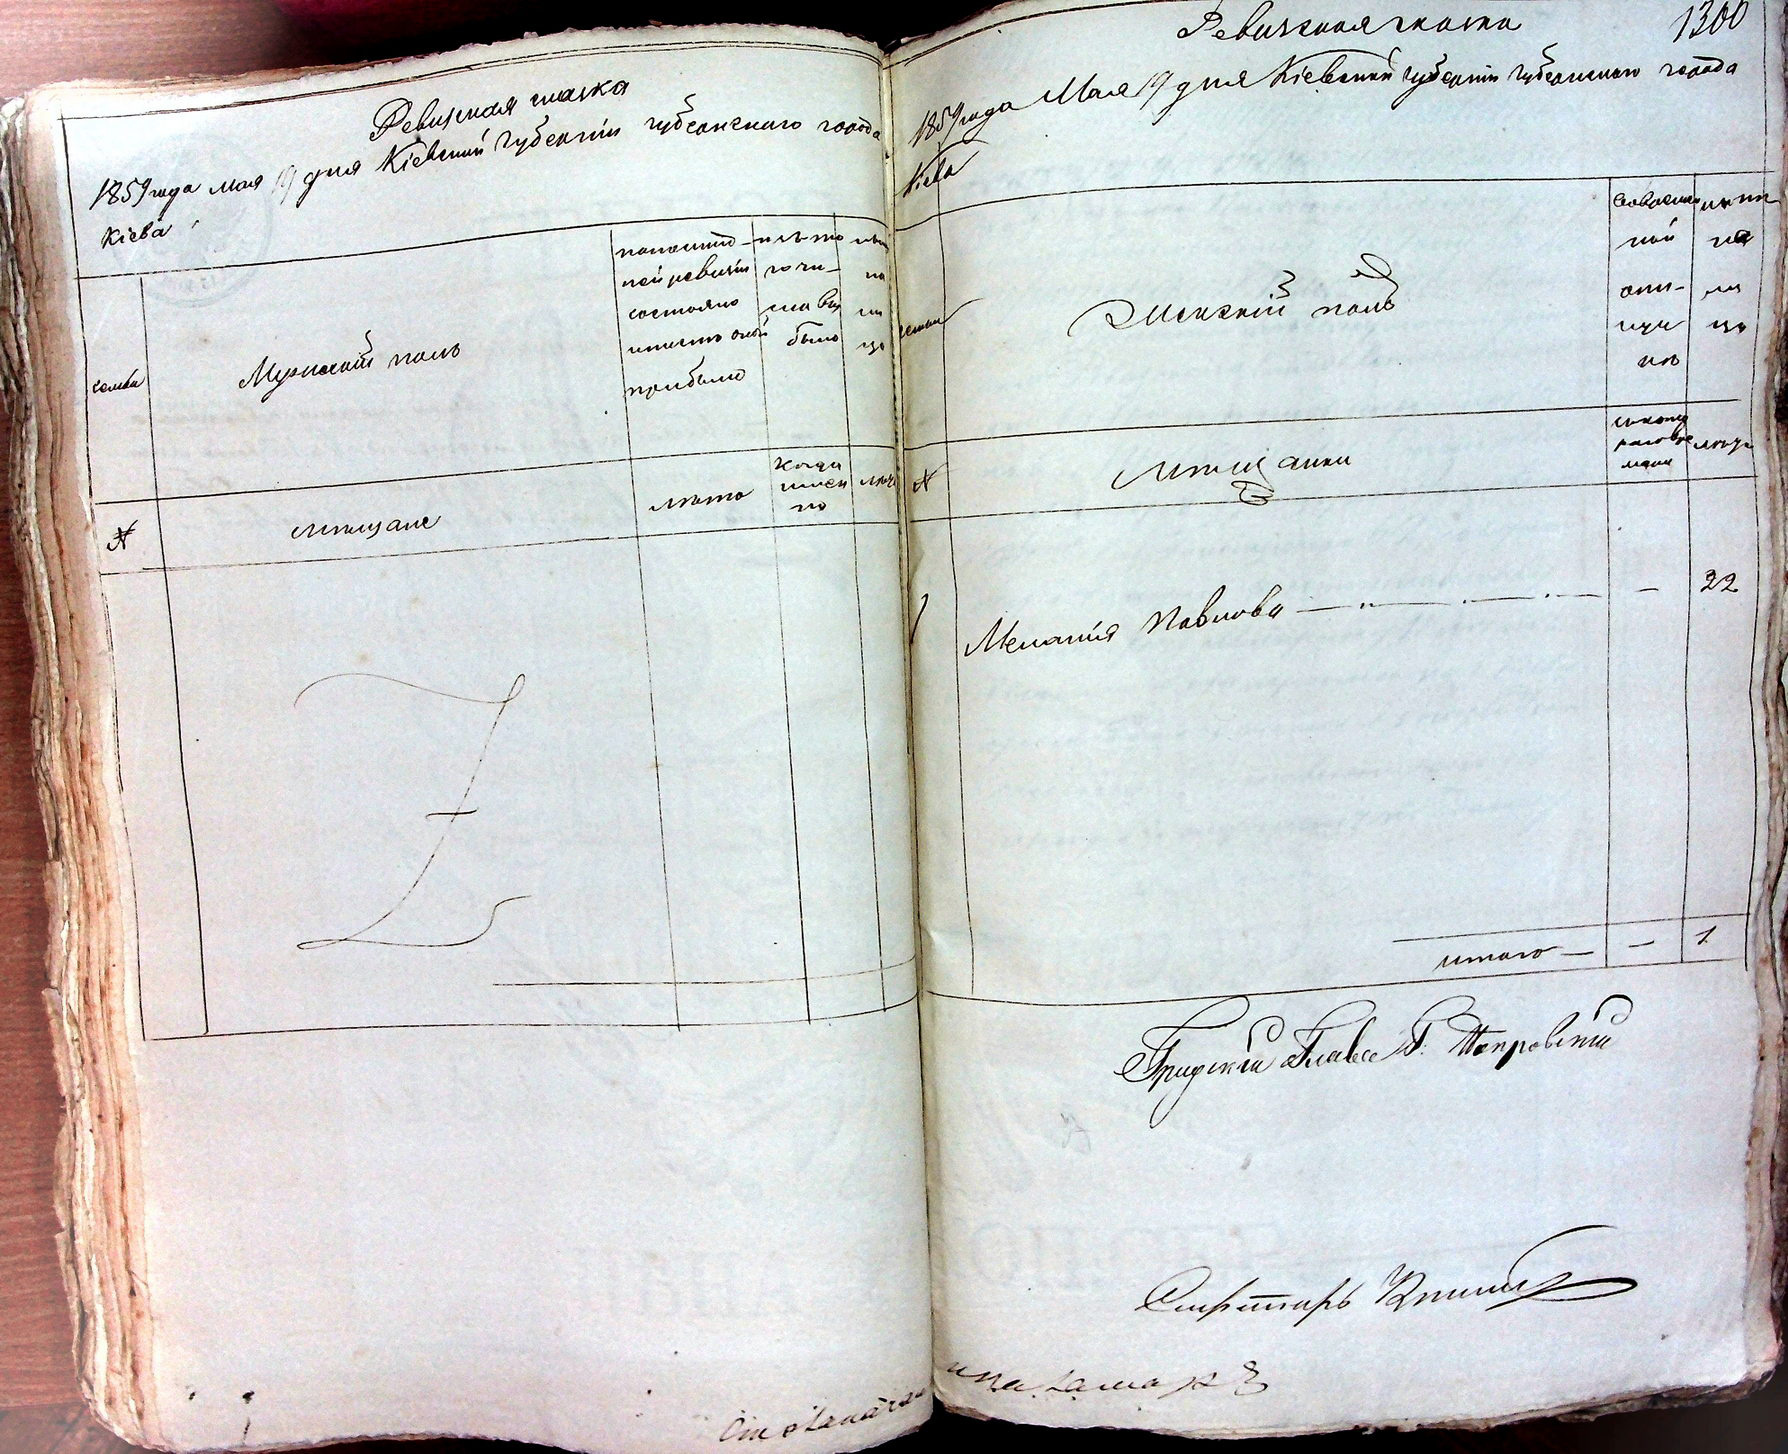 Ревизская сказка
1859 года мая 19 дня Кіевской губерніи губернского города
Кіева
семьи
Мужской полъ
по последней ревизіи состояло и после оной прибыло
изъ того числа выбыло
ныне на лицо
№
мещане
лета
когда именно
лета
Ревизская сказка
1300
1859 года Мая 19 дня Кіевской губерніи губернского города
Кіева
семьи
Женскій полъ
временной отлучке
ныне на лицо
№
мещанки
лета
1
Меланія Павлова — — — —
—
22
итого —
—
1
Градскій Глава
Секретарь